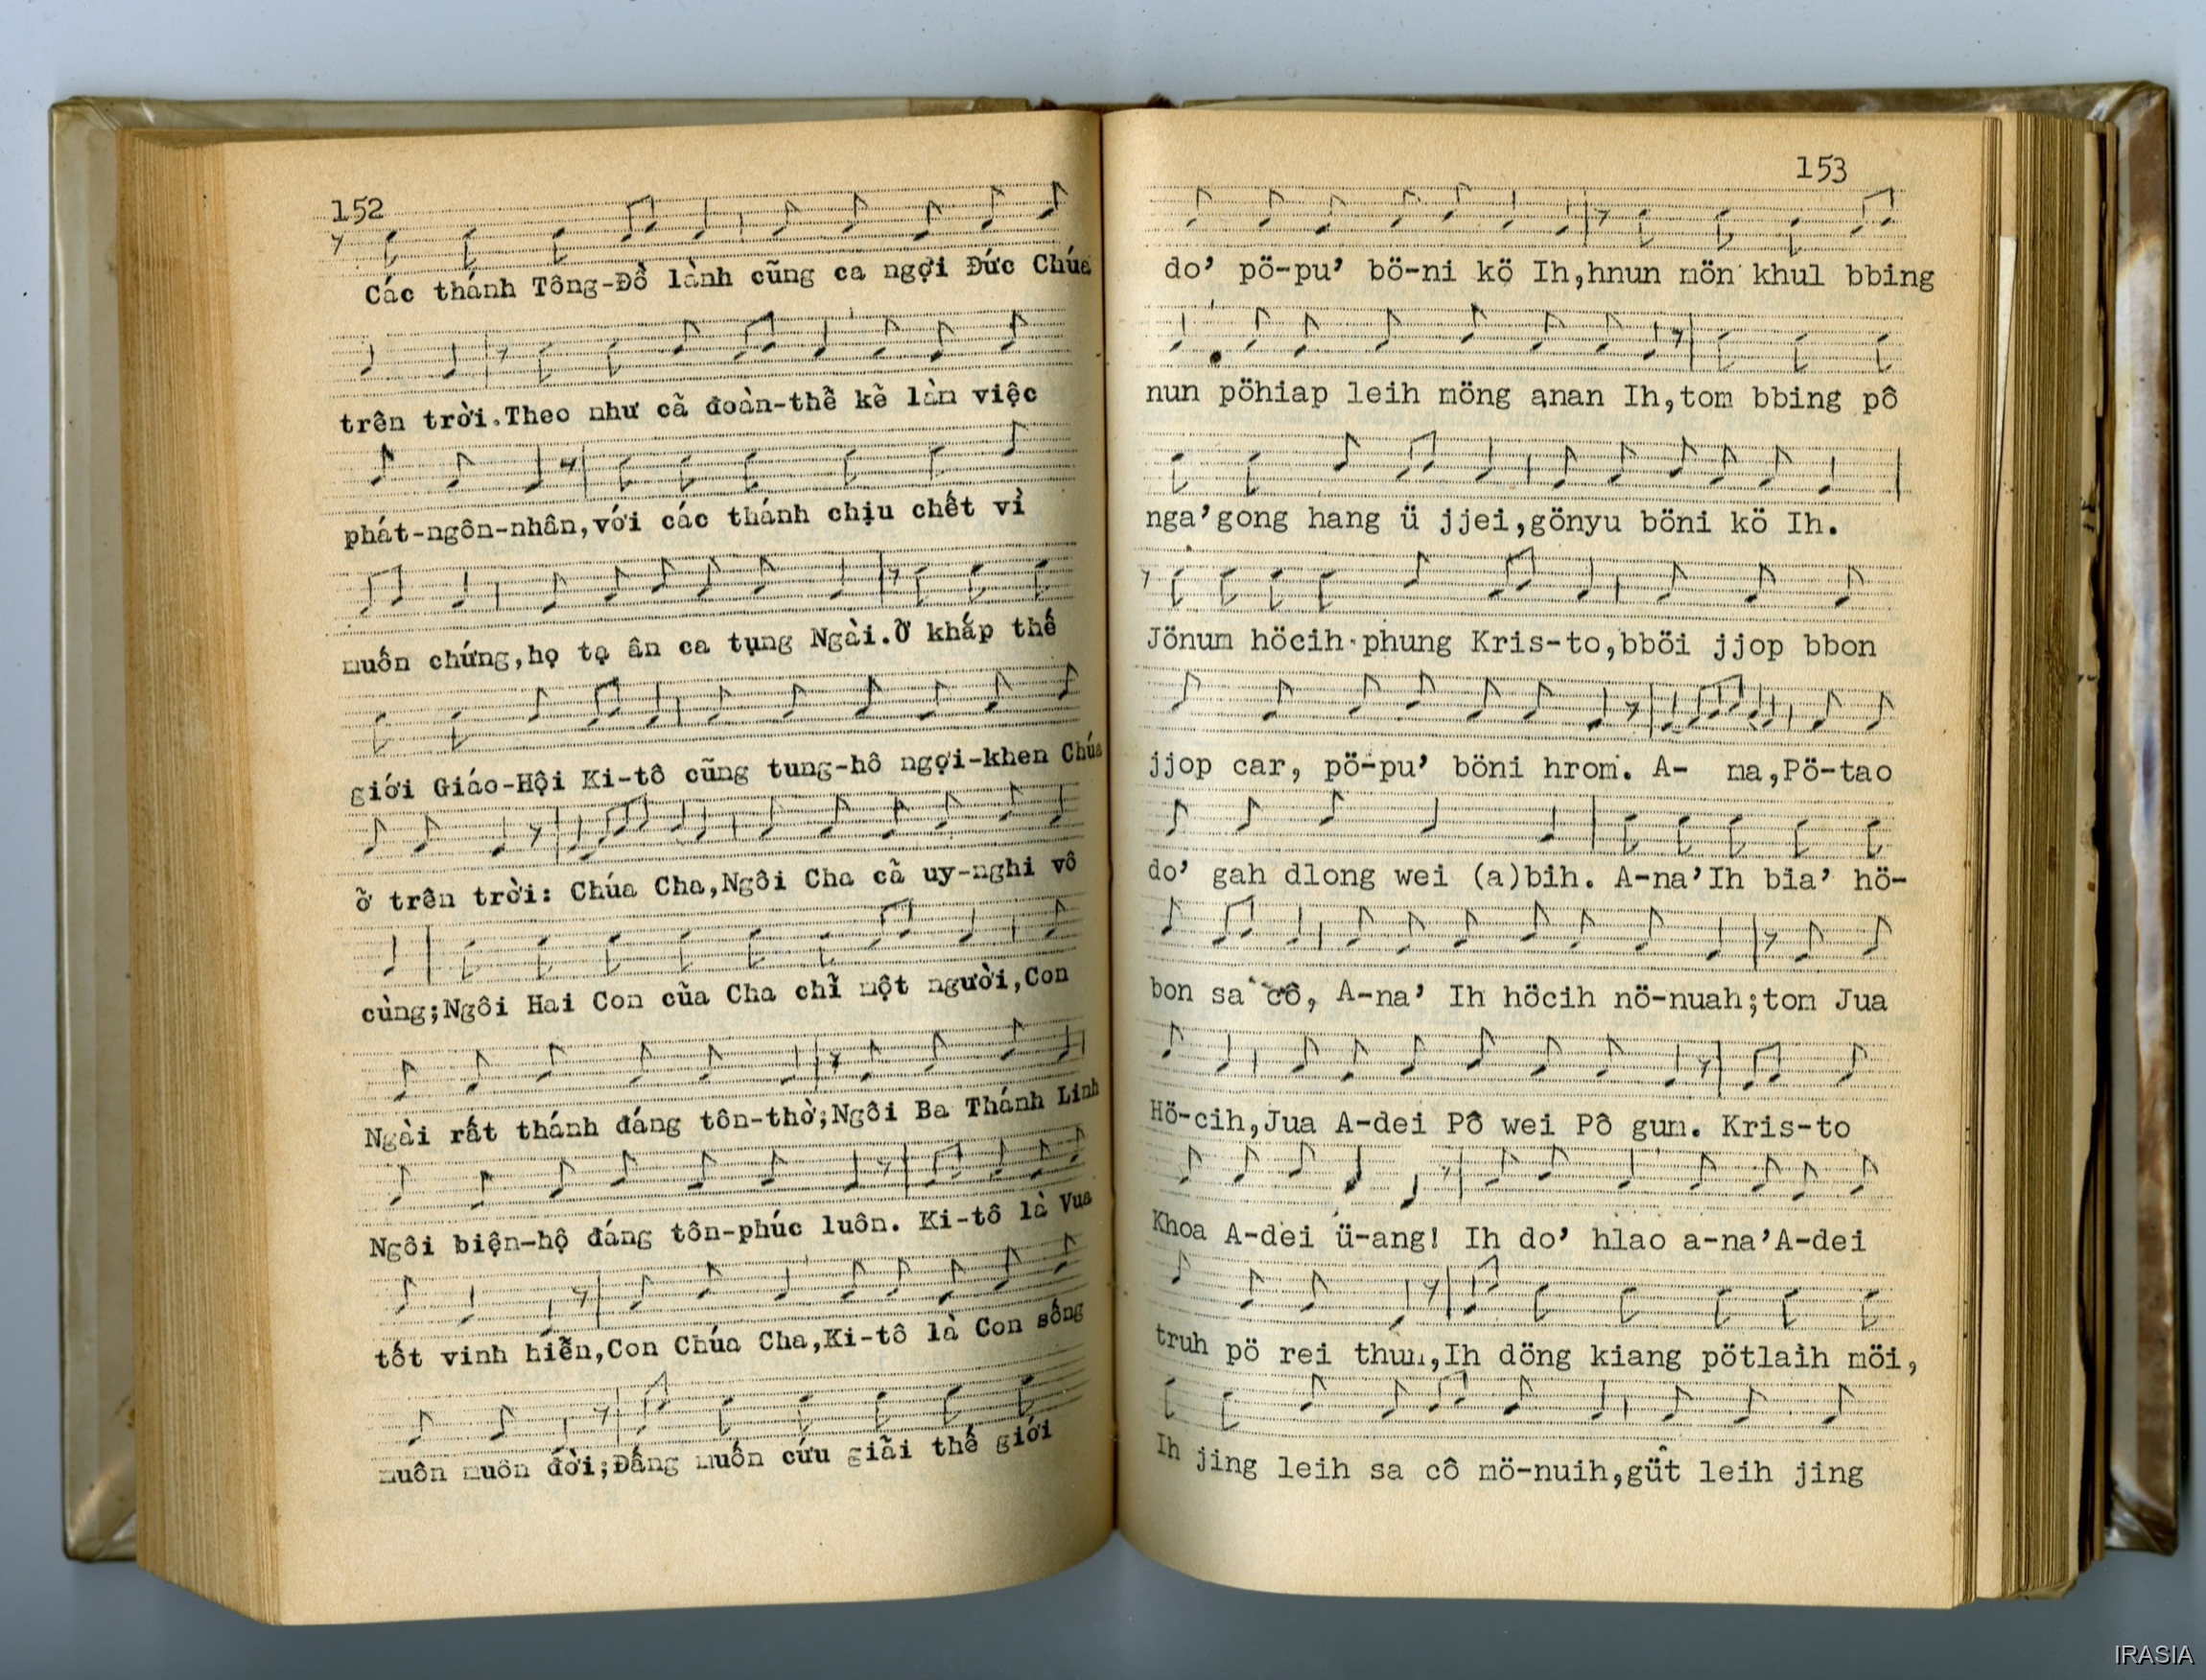 152
Các thánh Tông-Đồ lành cũng ca ngợi Đức Chúa
trên trời.Theo như cả đoàn-thể kẻ làn việc
phát-ngôn-nhân,với các thánh chịu chết vì
muốn chứng,họ tạ ân ca tụng Ngài.Ở khắp thế
giới Giáo-Hội Ki-tô cũng tung-hô ngợi-khen Chúa
ở trên trời: Chúa Cha,Ngôi Cha cả uy-nghi vô
cùng;Ngôi Hai Con của Cha chỉ một người,Con
Ngài rất thánh đáng tôn-thờ;Ngôi Ba Thánh Linh
Ngôi biện-hộ đáng tôn-phúc luôn. Ki-tô là Vua
tốt vinh hiển,Con Chúa Cha,Ki-tô là Con sống
muôn muôn đời;Đấng muốn cứu giải thế giới
153
do' pö-pu' bö-ni kö Ih,hnun mön khul bbing
nun pöhiap leih möng anan Ih,tom bbing pô
nga'gong hang ü jjei,gönyu böni kö Ih.
Jönum höcih phung Kris-to,bböi jjop bbon
jjop car, pö-pu' böni hrom. A- ma,Pö-tao
do' gah dlong wei (a)bih. A-na'Ih bia' hö-
bon sa cô, A-na' Ih höcih nö-nuah;tom Jua
Hö-cih,Jua A-dei Pô wei Pô gum. Kris-to
Khoa A-dei ü-ang! Ih do' hlao a-na'A-dei
truh pö rei thun,Ih döng kiang pötlaih möi,
Ih jing leih sa cô mö-nuih,gü̂t leih jing
IRASIA